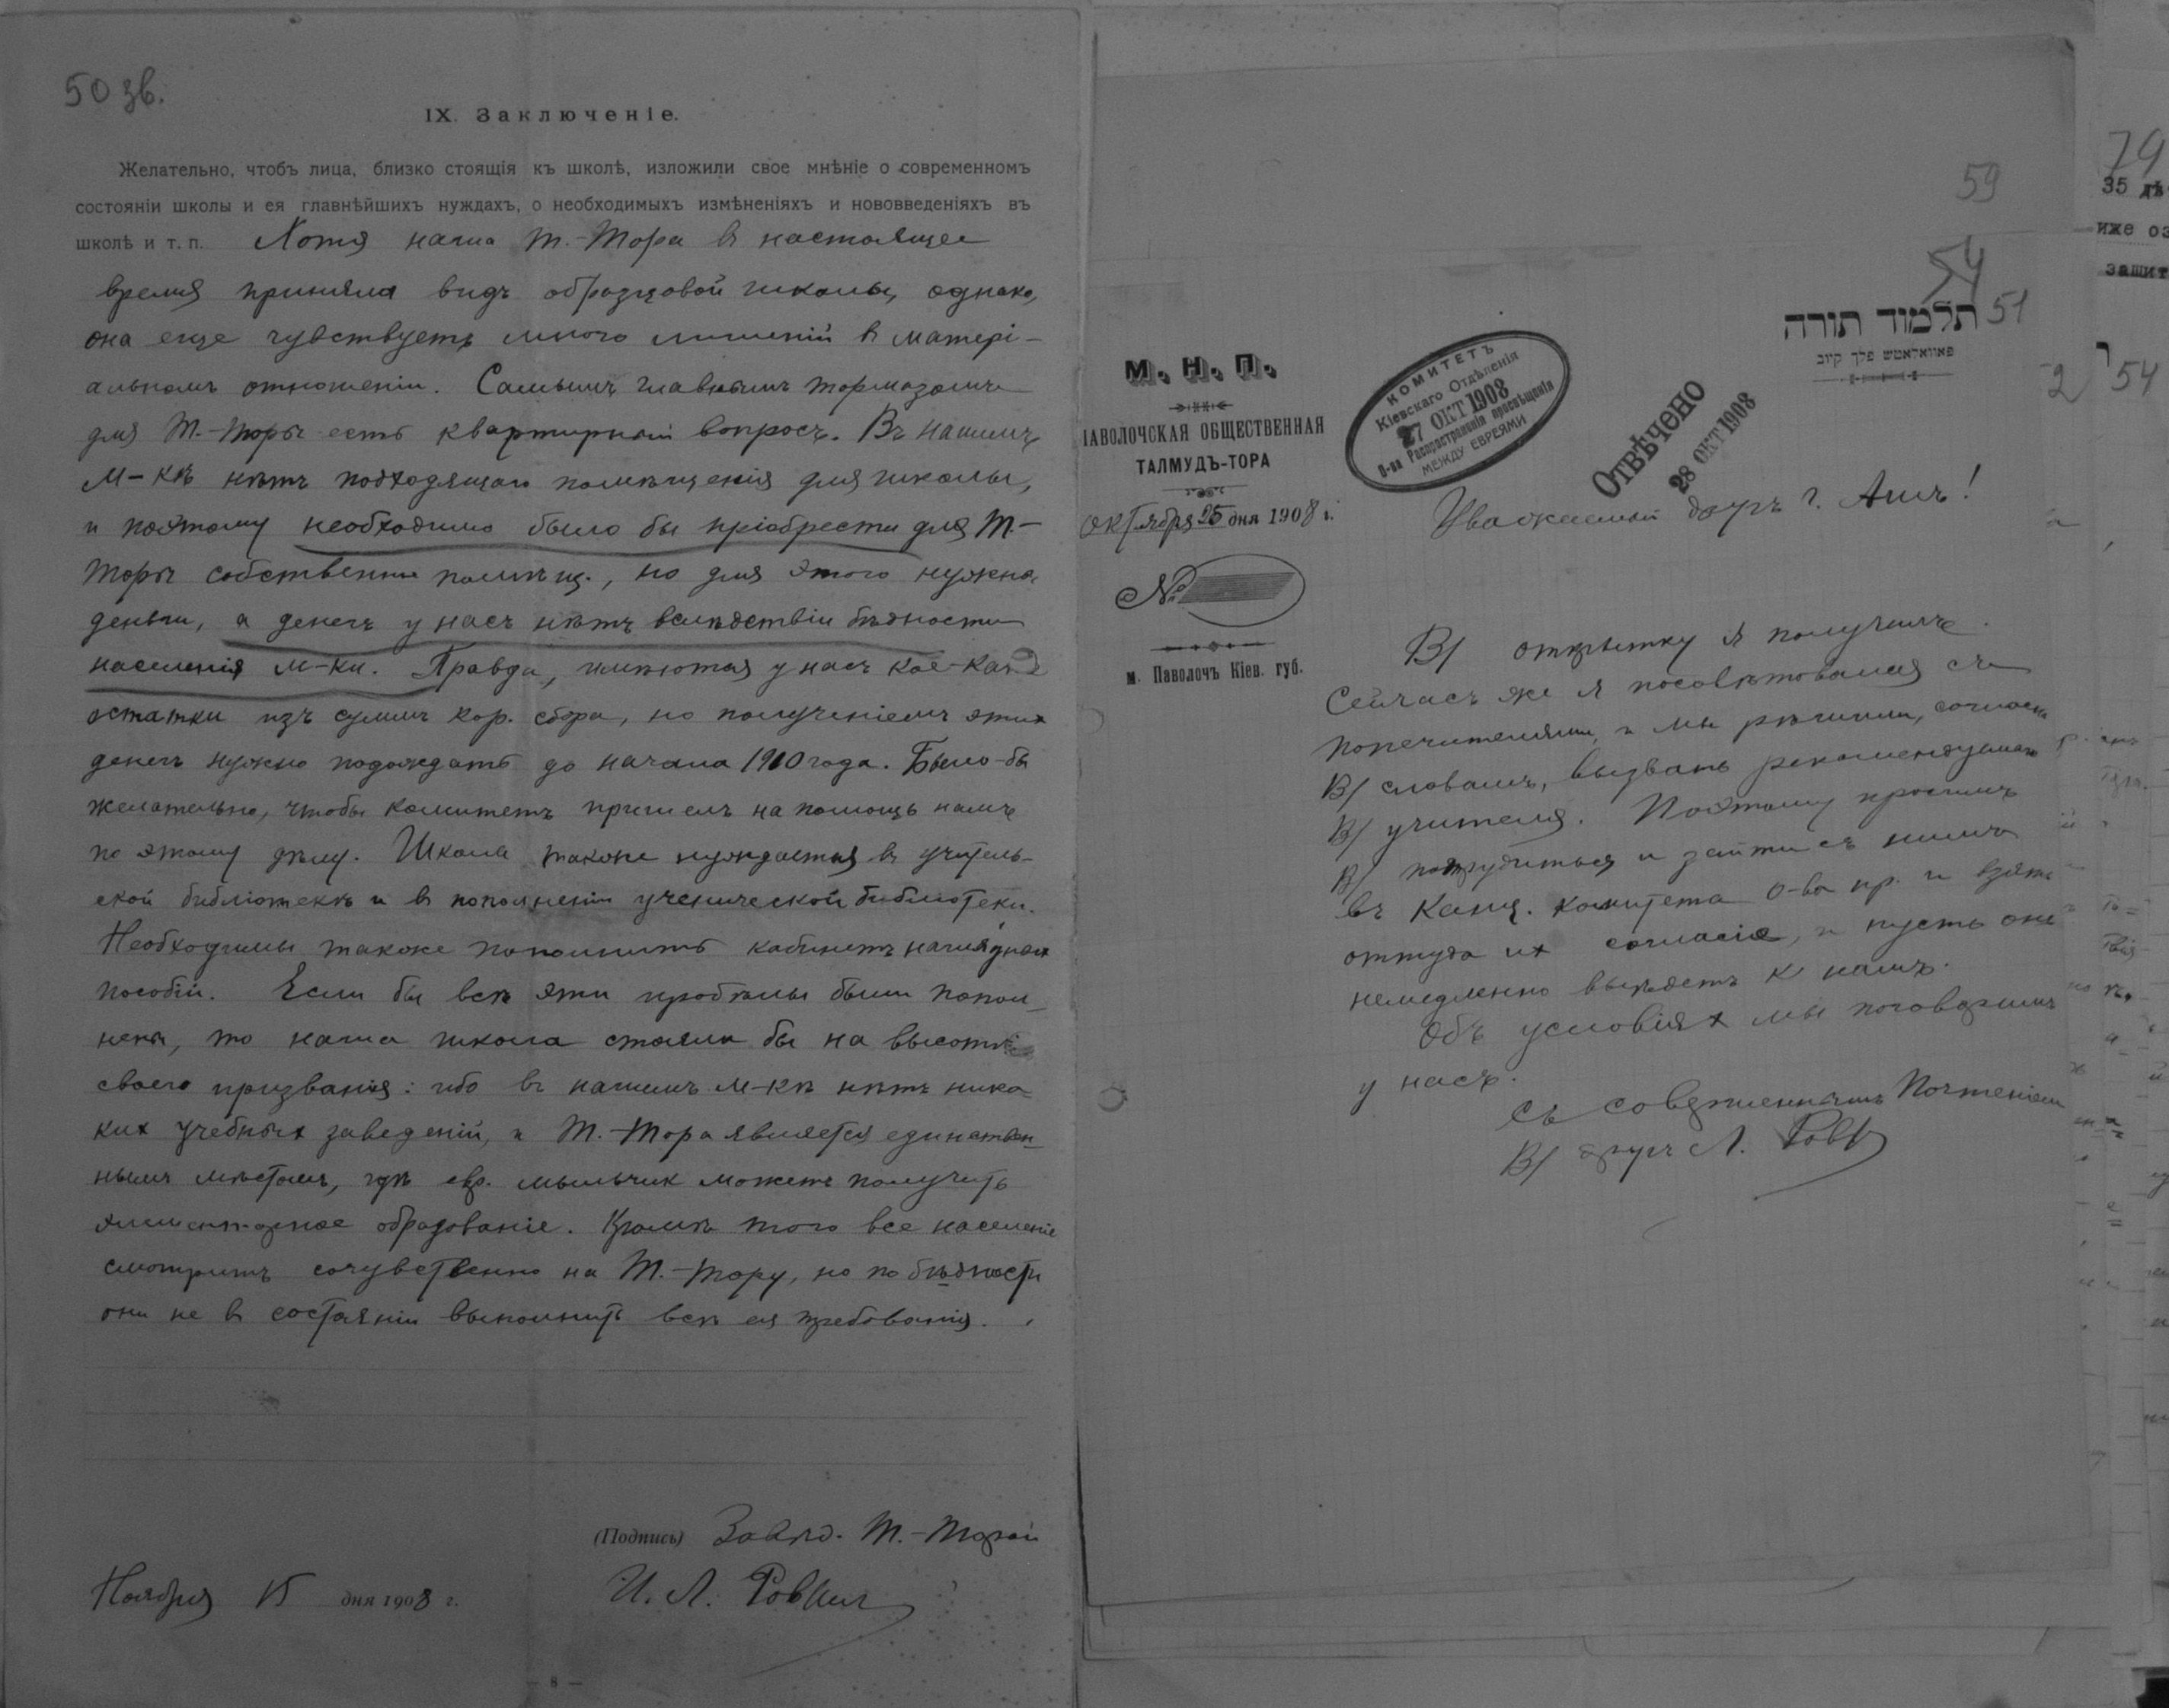 50 зв.
IX. Заключеніе.
Желательно, чтобъ лица, близко стоящія къ школѣ, изложили свое мнѣніе о современномъ
состояніи школы и ея главнѣйшихъ нуждахъ, о необходимыхъ измѣненіяхъ и нововведеніяхъ въ
школѣ и т. п. Хотя наша Т.-Тора в настоящее
время приняла видъ образцовой школы, однако,
она еще чувствуетъ много лишеній в матері-
альномъ отношеніи. Самымъ главнымъ тормазомъ
для Т.-Торы есть квартирный вопросъ. Въ нашемъ
м-кѣ нѣтъ подходящаго помѣщенія для школы,
и поэтому необходимо было бы пріобрести для Т.-
Торы собственное помѣщ., но для этого нужно
деньги, а денегъ у насъ нѣтъ вслѣдствіи бѣдности
населенія м-ки. Правда, имѣются у насъ кое-какіе
остатки изъ суммъ кор. сбора, но полученіемъ этих
денегъ нужно подождать до начала 1910 года. Было-бы
желательно, чтобы комитетъ пришелъ на помощь намъ
по этому дѣлу. Школа также нуждается въ учитель-
ской библіотекѣ и в пополненіи ученической библіотеки.
Необходимы также пополнить кабинетъ наглядных
пособій. Если бы всѣ эти пробѣлы были попол-
нены, то наша школа стояла бы на высотѣ
своего призванія: ибо въ нашемъ м-кѣ нѣтъ ника-
ких учебных заведеній, и Т.-Тора является единствен-
нымъ мѣстомъ, гдѣ евр. мальчик можетъ получить
элементарное образованіе. Кромѣ того все населеніе
смотритъ сочувственно на Т.-Тору, но по бѣдности
они не в состояніи выполнить всѣ ея требованія.
(Подпись) Завѣд. Т.-Торой
Ноября 15 дня 1908 г. И. Л. Ровкин
— 8 —
59
54
51
תלמוד תורה
פאוואלאטש פלך קיוב
М. Н. П.
ПАВОЛОЧСКАЯ ОБЩЕСТВЕННАЯ
ТАЛМУДЪ-ТОРА
Октября 25 дня 1908 г.
№
м. Паволочъ Кіев. губ.
КОМИТЕТЪ
Кіевскаго Отдѣленія
27 ОКТ 1908
О-ва Распространенія просвѣщенія
МЕЖДУ ЕВРЕЯМИ
ОТВѢЧЕНО
28 ОКТ 1908
Уважаемый другъ г. Ашъ!
В/ открытку я получилъ.
Сейчасъ же я посовѣтовался съ
попечителями, и мы рѣшили, согласно
В/ словамъ, вызвать рекомендуемаго
В/ учителя. Поэтому просимъ
В/ потрудиться и зайти съ нимъ
въ Канц. комитета О-ва пр. и взять
оттуда их согласіе, и пусть онъ
немедленно выѣдетъ к намъ.
Объ условіях мы поговоримъ
у насъ.
Съ совершеннымъ Почтеніем
В/ другъ Л. Ровк
79
35 дѣ
иже оз
защит
54